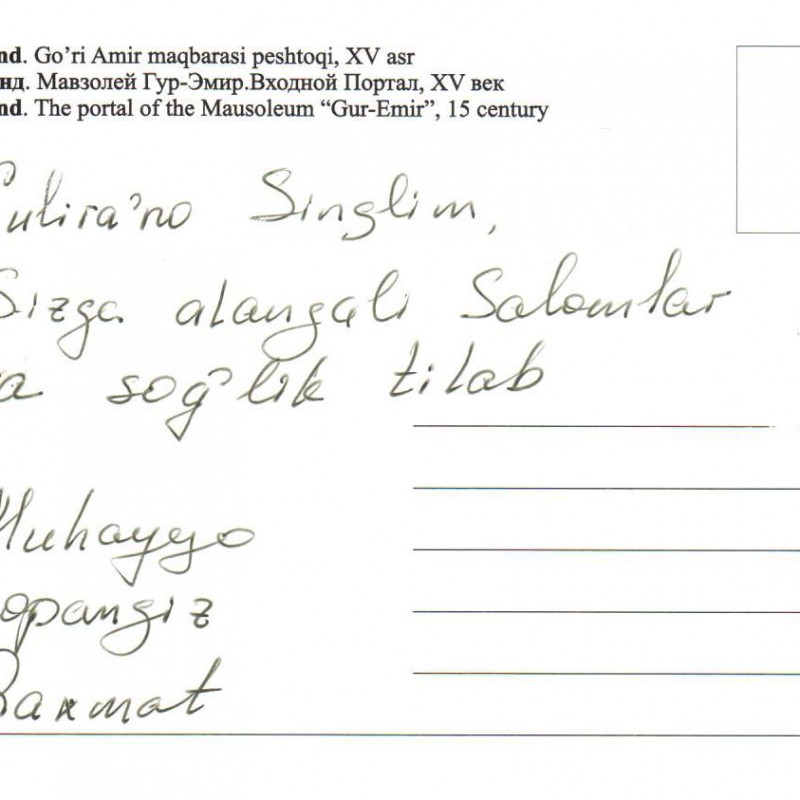 nd. Go’ri Amir maqbarasi peshtoqi, XV asr
нд. Мавзолей Гур-Эмир.Входной Портал, XV век
nd. The portal of the Mausoleum “Gur-Emir”, 15 century
Singlim,
Sizga alangali Salomlar
va sog'lik tilab
Muhayyo
opangiz
Raxmat